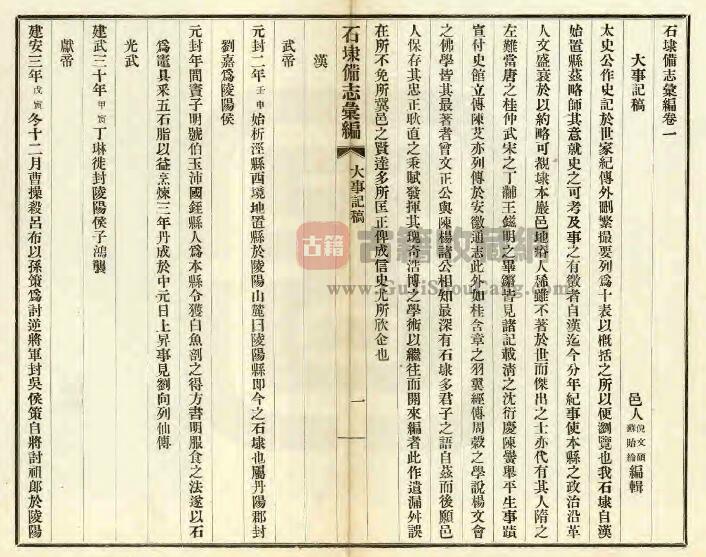 石埭備志彙編卷一
大事記稿
邑人倪文碩蘇貽綸編輯
太史公作史記於世家紀傳外刪繁撮要列爲十表以概括之所以便瀏覽也我石埭自漢
始置縣茲略師其意就史之可考及事之有徵者自漢迄今分年紀事使本縣之政治沿革
人文盛衰於以約略可覩埭本嚴邑地瘠人稀雖不著於世而傑出之士亦代有其人隋之
左難當唐之桂仲武宋之丁黼王鎡明之畢鏘皆見諸記載清之沈衍慶陳黌舉平生事蹟
宣付史館立傳陳艾亦列傳於安徽通志此外如桂含章之羽翼經傳周瑴之學說楊文會
之佛學皆其最著者曾文正公與陳楊諸公相知最深有石埭多君子之語自茲而後願邑
人保存其忠正耿直之秉賦發揮其瑰奇浩博之學術以繼往而開來編者此作遺漏舛誤
在所不免所冀邑之賢達多所匡正俾成信史尤所欣企也
石埭備志彙編
大事記稿
一
漢
武帝
元封二年壬申始析涇縣西境地置縣於陵陽山麓曰陵陽縣即今之石埭也屬丹陽郡封
劉嘉爲陵陽侯
元封年間竇子明號伯玉沛國銍縣人爲本縣令獲白魚剖之得方書明服食之法遂以石
爲鼉具采五石脂以益烹煉三年丹成於中元日上昇事見劉向列仙傳
光武
建武三十年甲寅丁綝徙封陵陽侯子鴻襲
獻帝
建安三年戊寅冬十二月曹操殺呂布以孫策爲討逆將軍封吳侯策自將討祖郎於陵陽
古籍
古籍收藏网
www.GuJiShouCang.com